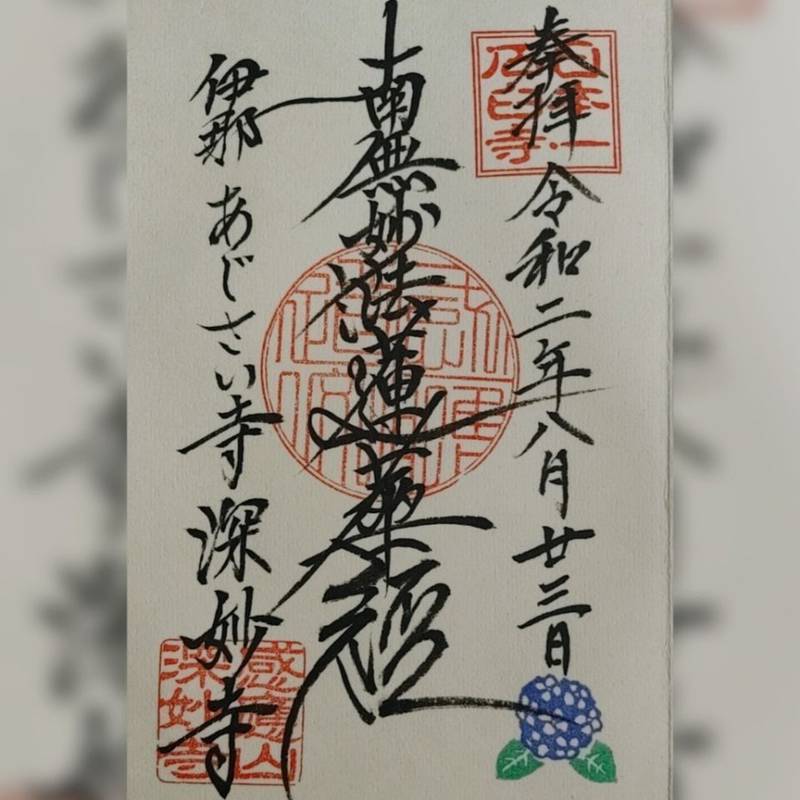 奉拝 令和二年八月廿三日
南無妙法蓮華経
伊那 あじさい寺 深妙寺
感應山
深妙寺